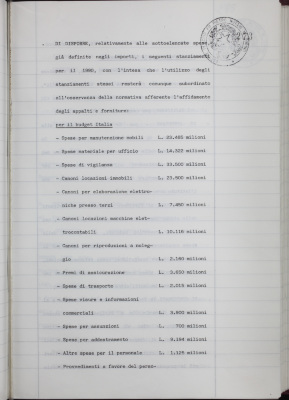 DI DISPORRE, relativamente alle sottoelencate spese
già definite negli importi, i seguenti stanziamenti
per il 1988, con l'intesa che l'utilizzo degli
stanziamenti stessi resterà comunque subordinato
all'osservanza della normativa afferente l'affidamento
degli appalti e forniture:
per il budget Italia
- Spese per manutenzione mobili L. 29.485 milioni
- Spese materiale per ufficio L. 14.322 milioni
- Spese di vigilanza L. 31.500 milioni
- Canoni locazioni immobili L. 23.900 milioni
- Canoni per elaborazione elettro-
niche presso terzi L. 7.480 milioni
- Canoni locazioni macchine elet-
trocontabili L. 10.116 milioni
- Canoni per riproduzioni a noleg-
gio L. 2.190 milioni
- Premi di assicurazione L. 3.830 milioni
- Spese di trasporto L. 2.015 milioni
- Spese visure e informazioni
commerciali L. 3.802 milioni
- Spese per assunzioni L. 700 milioni
- Spese per addestramento L. 3.194 milioni
- Altre spese per il personale L. 1.125 milioni
- Provvedimenti a favore del perso-